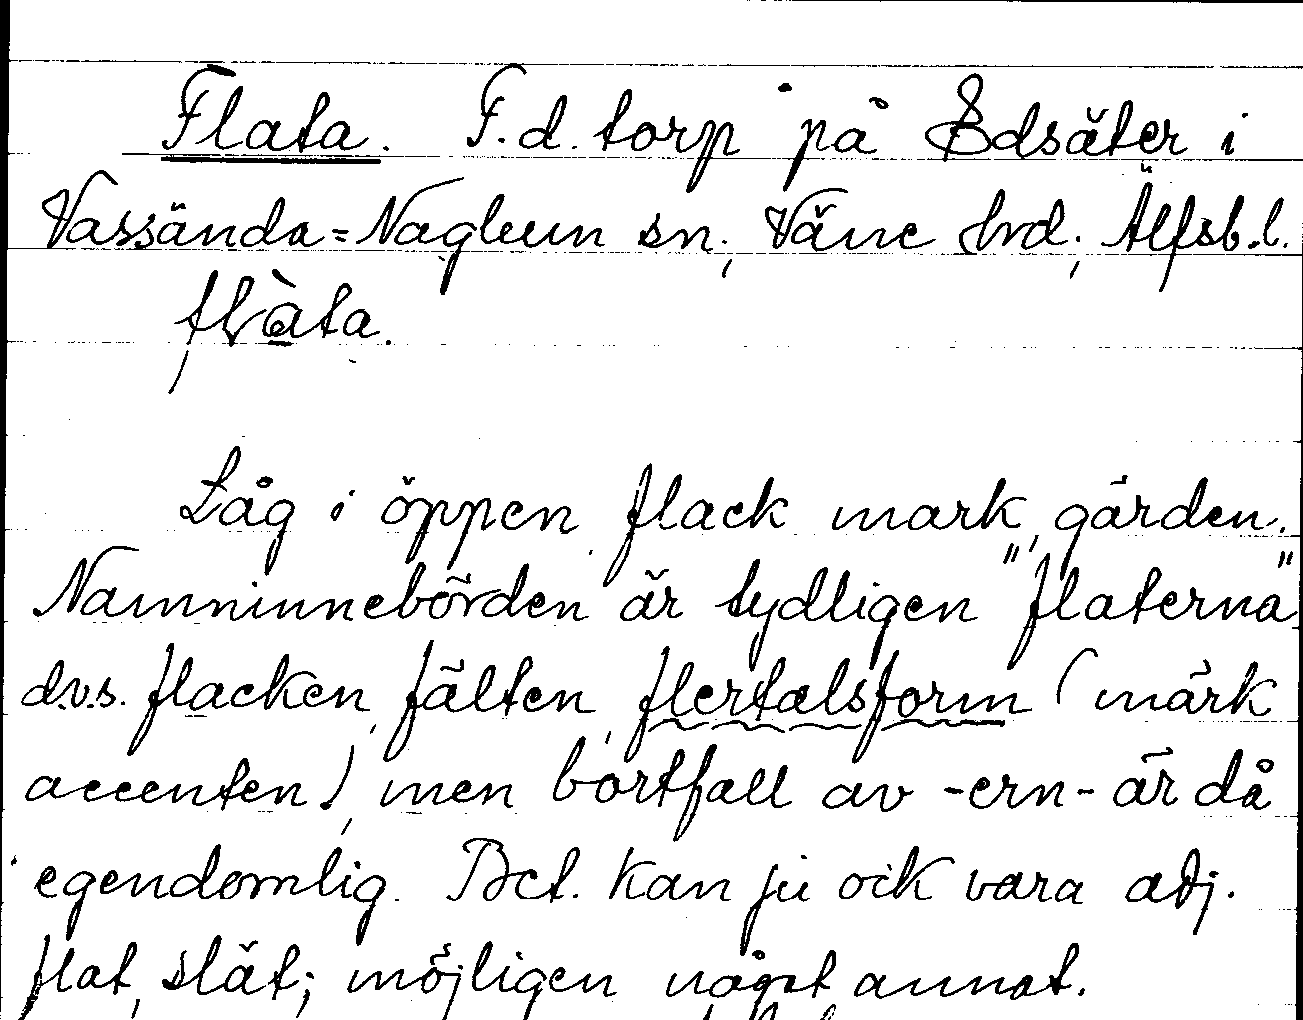 Flata. F.d. torp på Edsäter i
Vassända=Naglum sn., Väne hrd; Älfsb.l.
flàta.
Låg i öppen, flack mark, gärden.
Namninnebörden är tydligen "flaterna"
d.v.s. flacken, fälten, flertalsform (märk
accenten), men bortfall av -ern- är då
egendomlig. Bet. kan ju ock vara adj.
flat, slät; möjligen något annat.